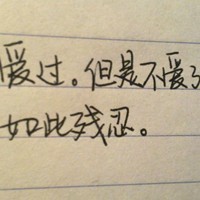 爱过。但是不爱了
如此残忍。